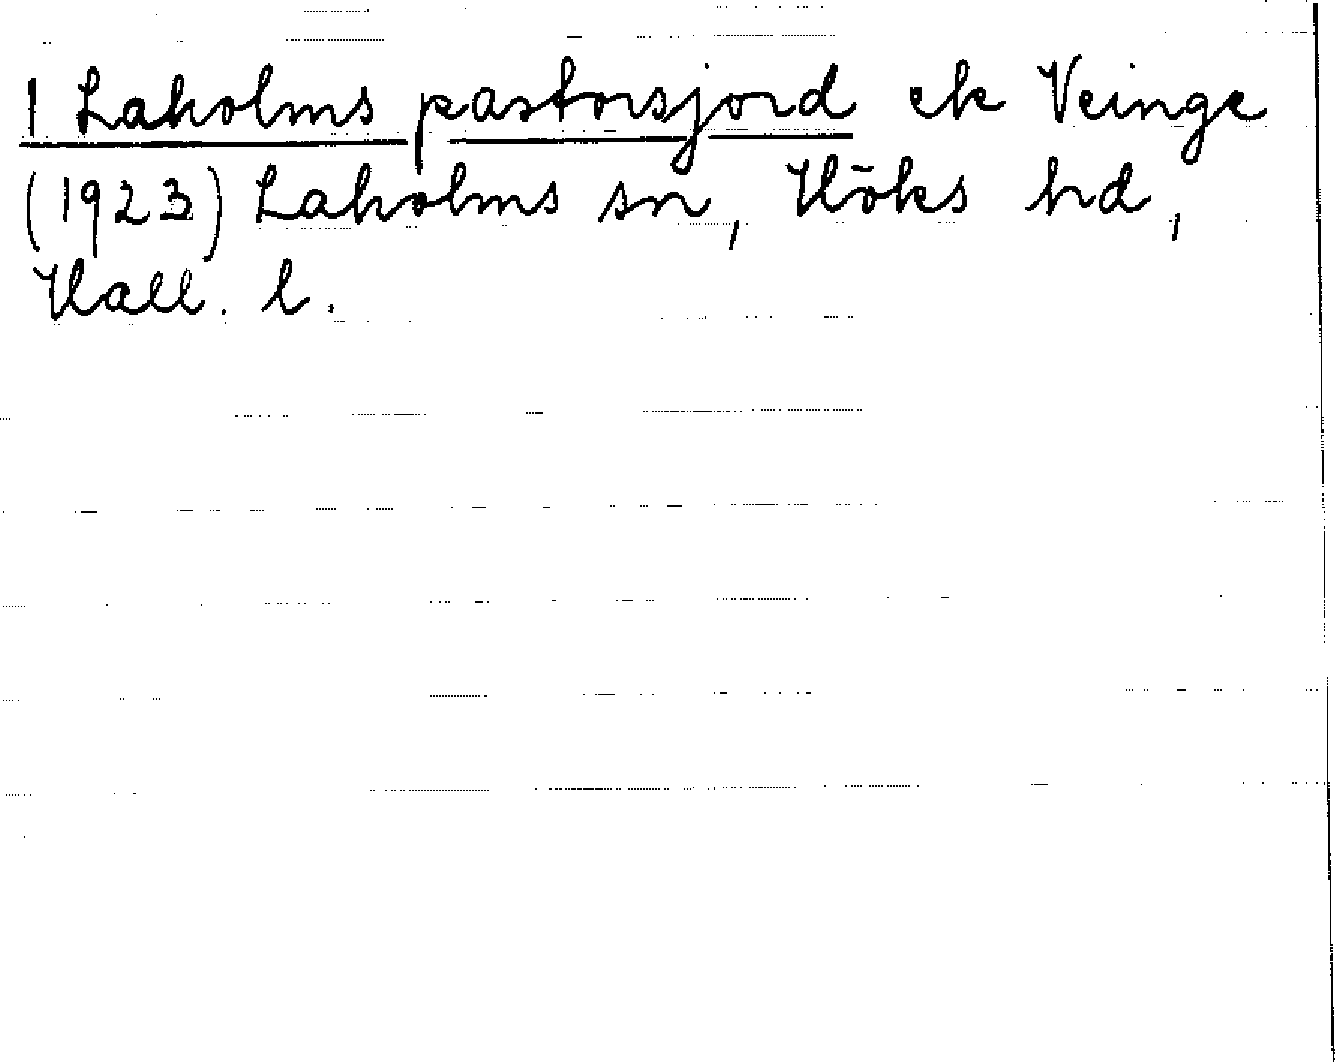 1 Laholms pastorsjord ek Veinge
(1923) Laholms sn, Höks hd,
Hall. l.